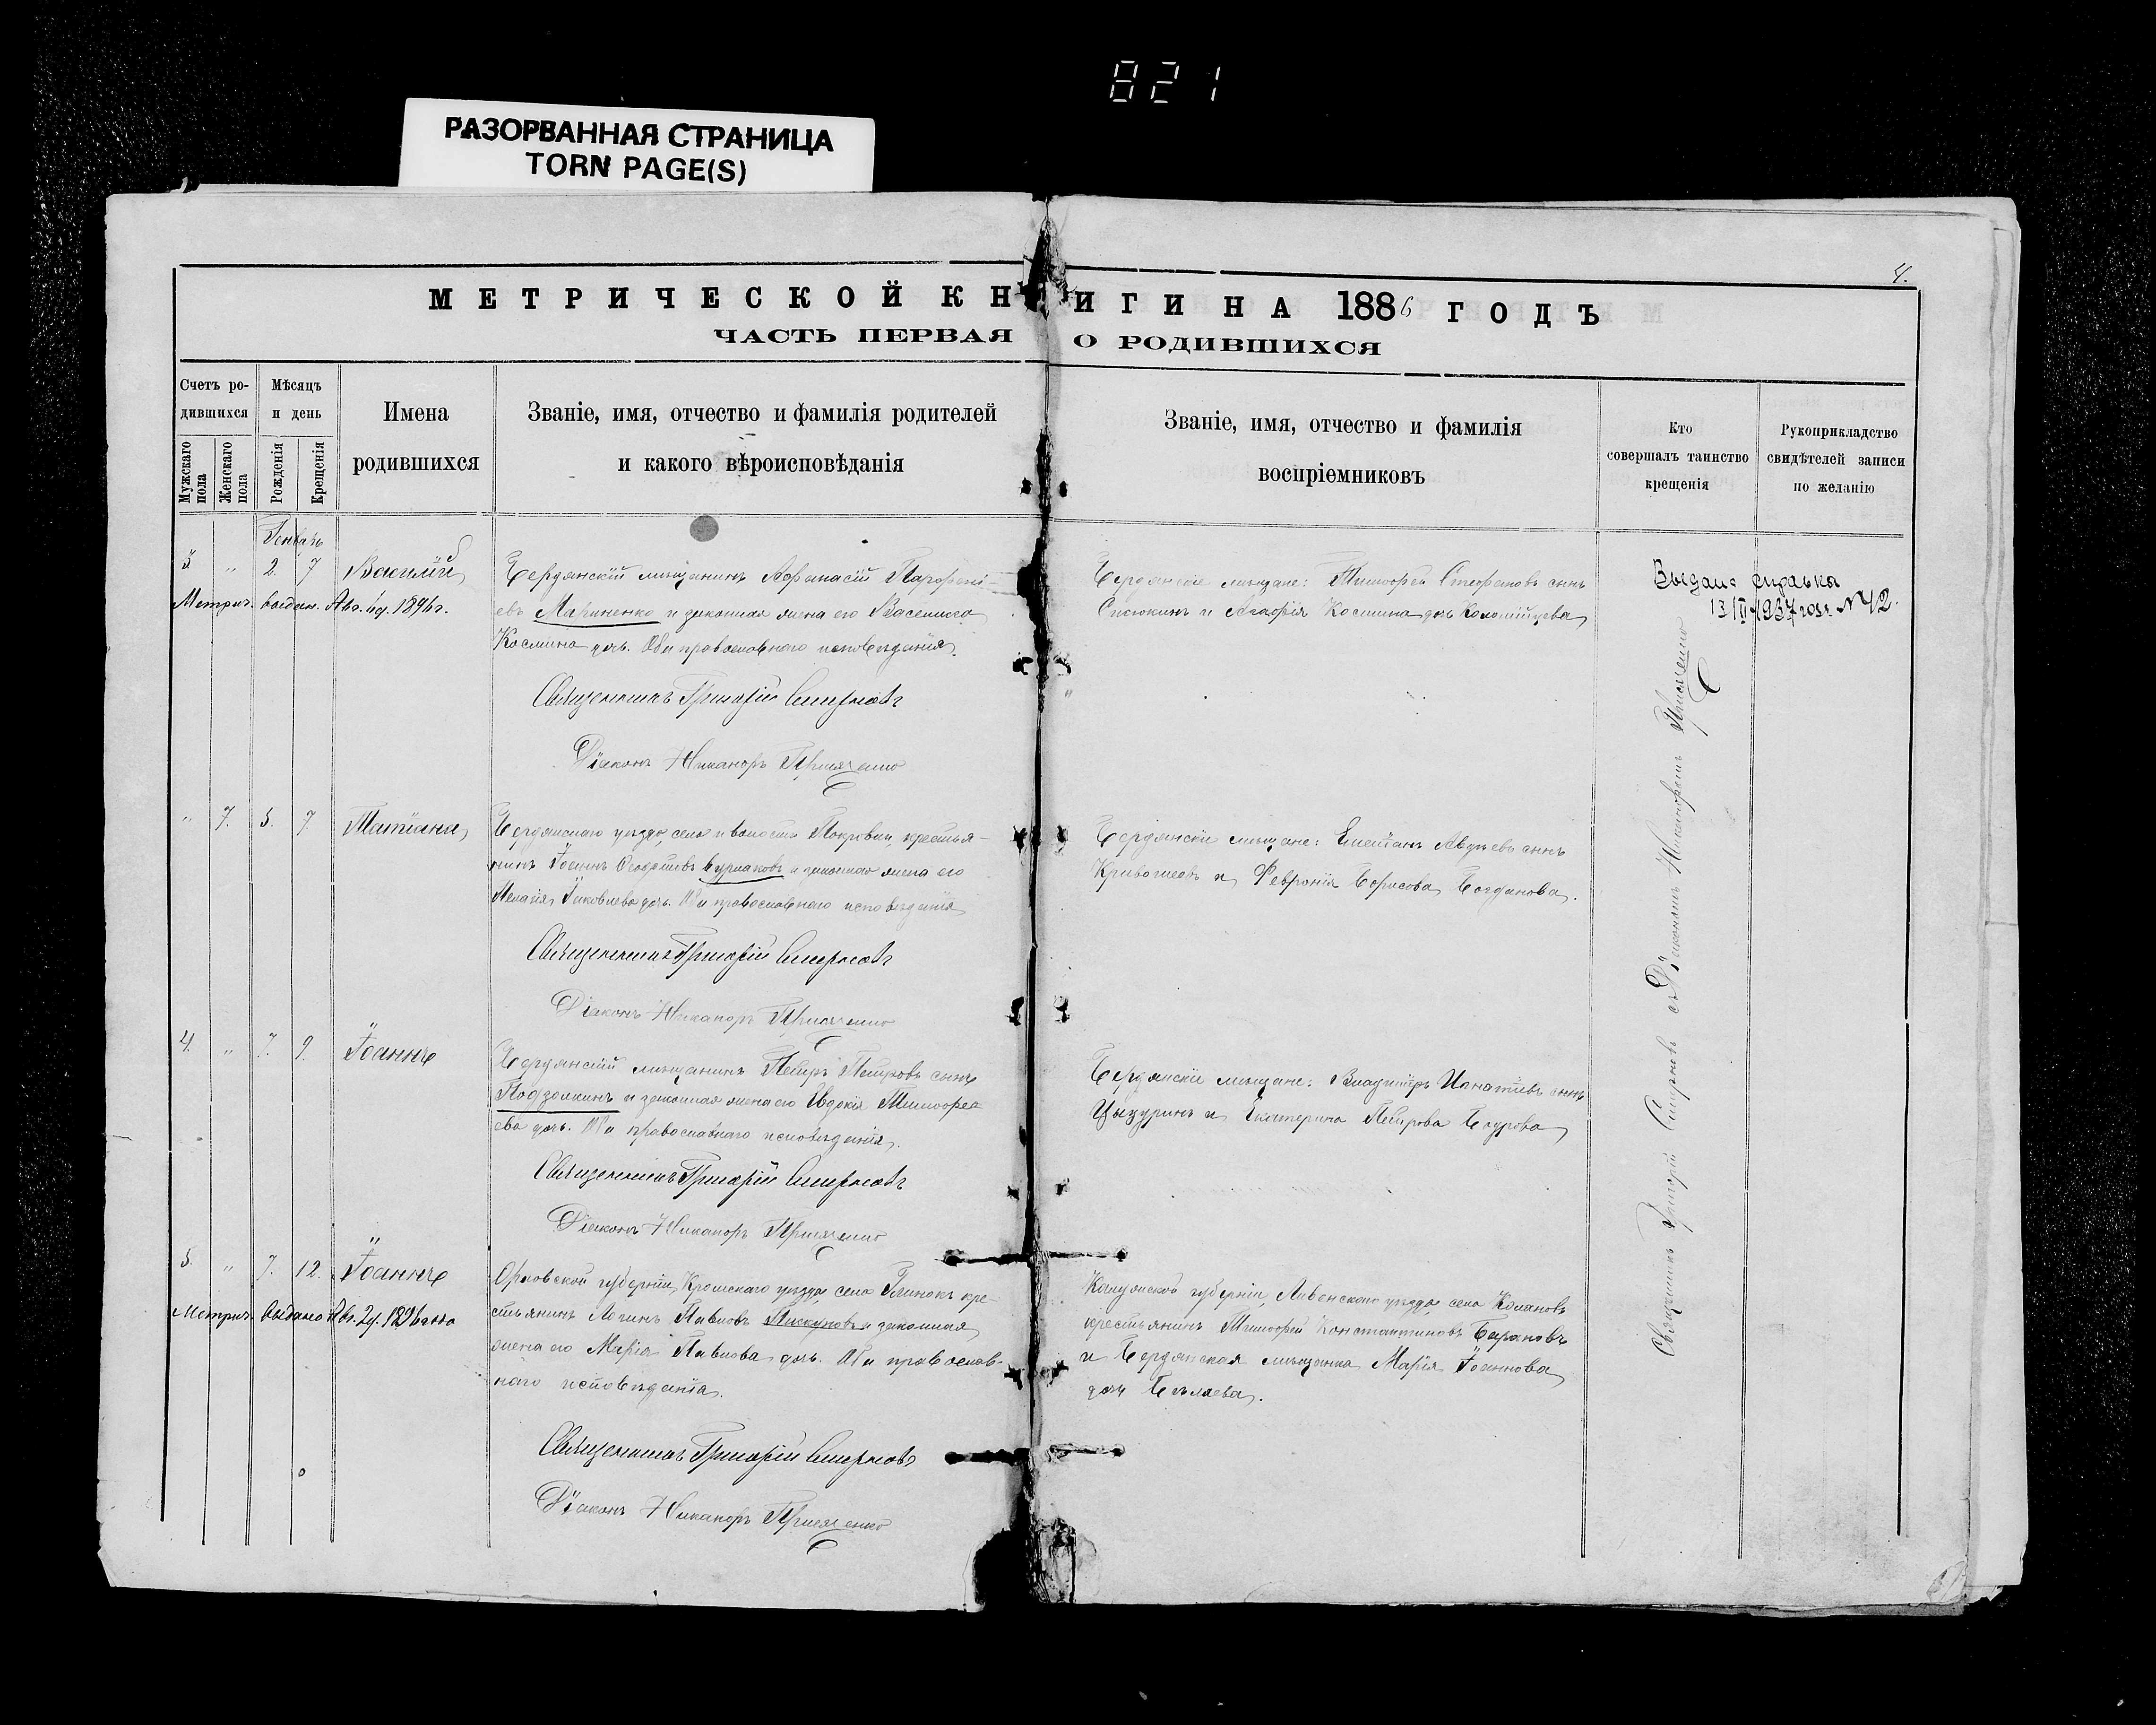 821
РАЗОРВАННАЯ СТРАНИЦА
TORN PAGE(S)
4.
МЕТРИЧЕСКОЙ КНИГИ НА 1886 ГОДЪ
ЧАСТЬ ПЕРВАЯ О РОДИВШИХСЯ
Счетъ ро-
дившихся
Мужскаго пола
Женскаго пола
Мѣсяцъ
и день
Рожденія
Крещенія
Имена
родившихся
Званіе, имя, отчество и фамилія родителей
и какого вѣроисповѣданія
Званіе, имя, отчество и фамилія
воспріемниковъ
Кто
совершалъ таинство
крещенія
Рукоприкладство
свидѣтелей записи
по желанію
Генварь
3 " 2 7 Василій
Метрич. выдан. Авг. 6д. 1896 г.
Бердянскій мѣщанинъ Афанасій Парфені-
евъ Мариненко и законная жена его Василиса
Космина дочь. Оба православнаго исповѣданія.
Священникъ Григорій Смирновъ
Діаконъ Никаноръ
Бердянскіе мѣщане: Тимофей Стефановъ сынъ
и Агафія Космина дочь Коломійцева
Выдана справка
13/II 1937 года №42.
" 7. 5. 7 Татіана
Бердянскаго уѣзда, села и волости Покровки, крестья-
нинъ Іоаннъ Ѳеодотовъ и законная жена его
Іаковлева дочь. Оба православнаго исповѣданія
Священникъ Григорій Смирновъ
Діаконъ Никаноръ
Бердянскіе мѣщане: Авдѣевъ сынъ
и Февронія Борисова Богданова.
4. " 7. 9. Іоаннъ
Бердянскій мѣщанинъ Петръ Петровъ сынъ
Подзолкинъ и законная жена его Евдокія Тимофее-
ева дочь. Оба православнаго исповѣданія.
Священникъ Григорій Смирновъ
Діаконъ Никаноръ
Бердянскіе мѣщане: Владиміръ Игнатіевъ сынъ
Цыцуринъ и Екатерина Петрова
5. " 7. 12. Іоаннъ
Метрич. выдано Авг. 2д. 1896 года
Орловской губерніи, Кромскаго уѣзда, села Глинокъ кре-
стьянинъ Логинъ Павловъ Пискуновъ и законная
жена его Марія Павлова дочь. Оба православ-
наго исповѣданія.
Священникъ Григорій Смирновъ
Діаконъ Никаноръ
губерніи, Ливенскаго уѣзда, села
крестьянинъ Тимофей Константиновъ Барановъ
и Бердянская мѣщанка Марія Іоаннова
дочь Бѣляева.
Священникъ Григорій Смирновъ съ Діакономъ Никаноромъ